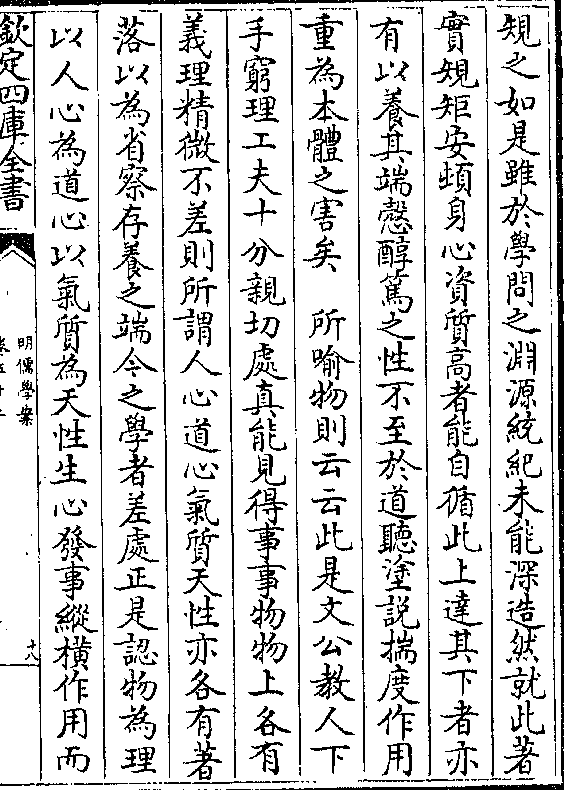 規之如是雖於學問之淵源統紀未能深造然就此著
實規矩安頓身心資質高者能自循此上達其下者亦
有以養其端慤醇篤之性不至於道聽塗説揣度作用
重為本體之害矣　所喻物則云云此是文公教人下
手窮理工夫十分親切處真能見得事事物物上各有
義理精微不差則所謂人心道心氣質天性亦各有著
落以為省察存養之端今之學者差處正是認物為理
以人心為道心以氣質為天性生心發事縱橫作用而
欽定四庫全書
明儒學案
十八